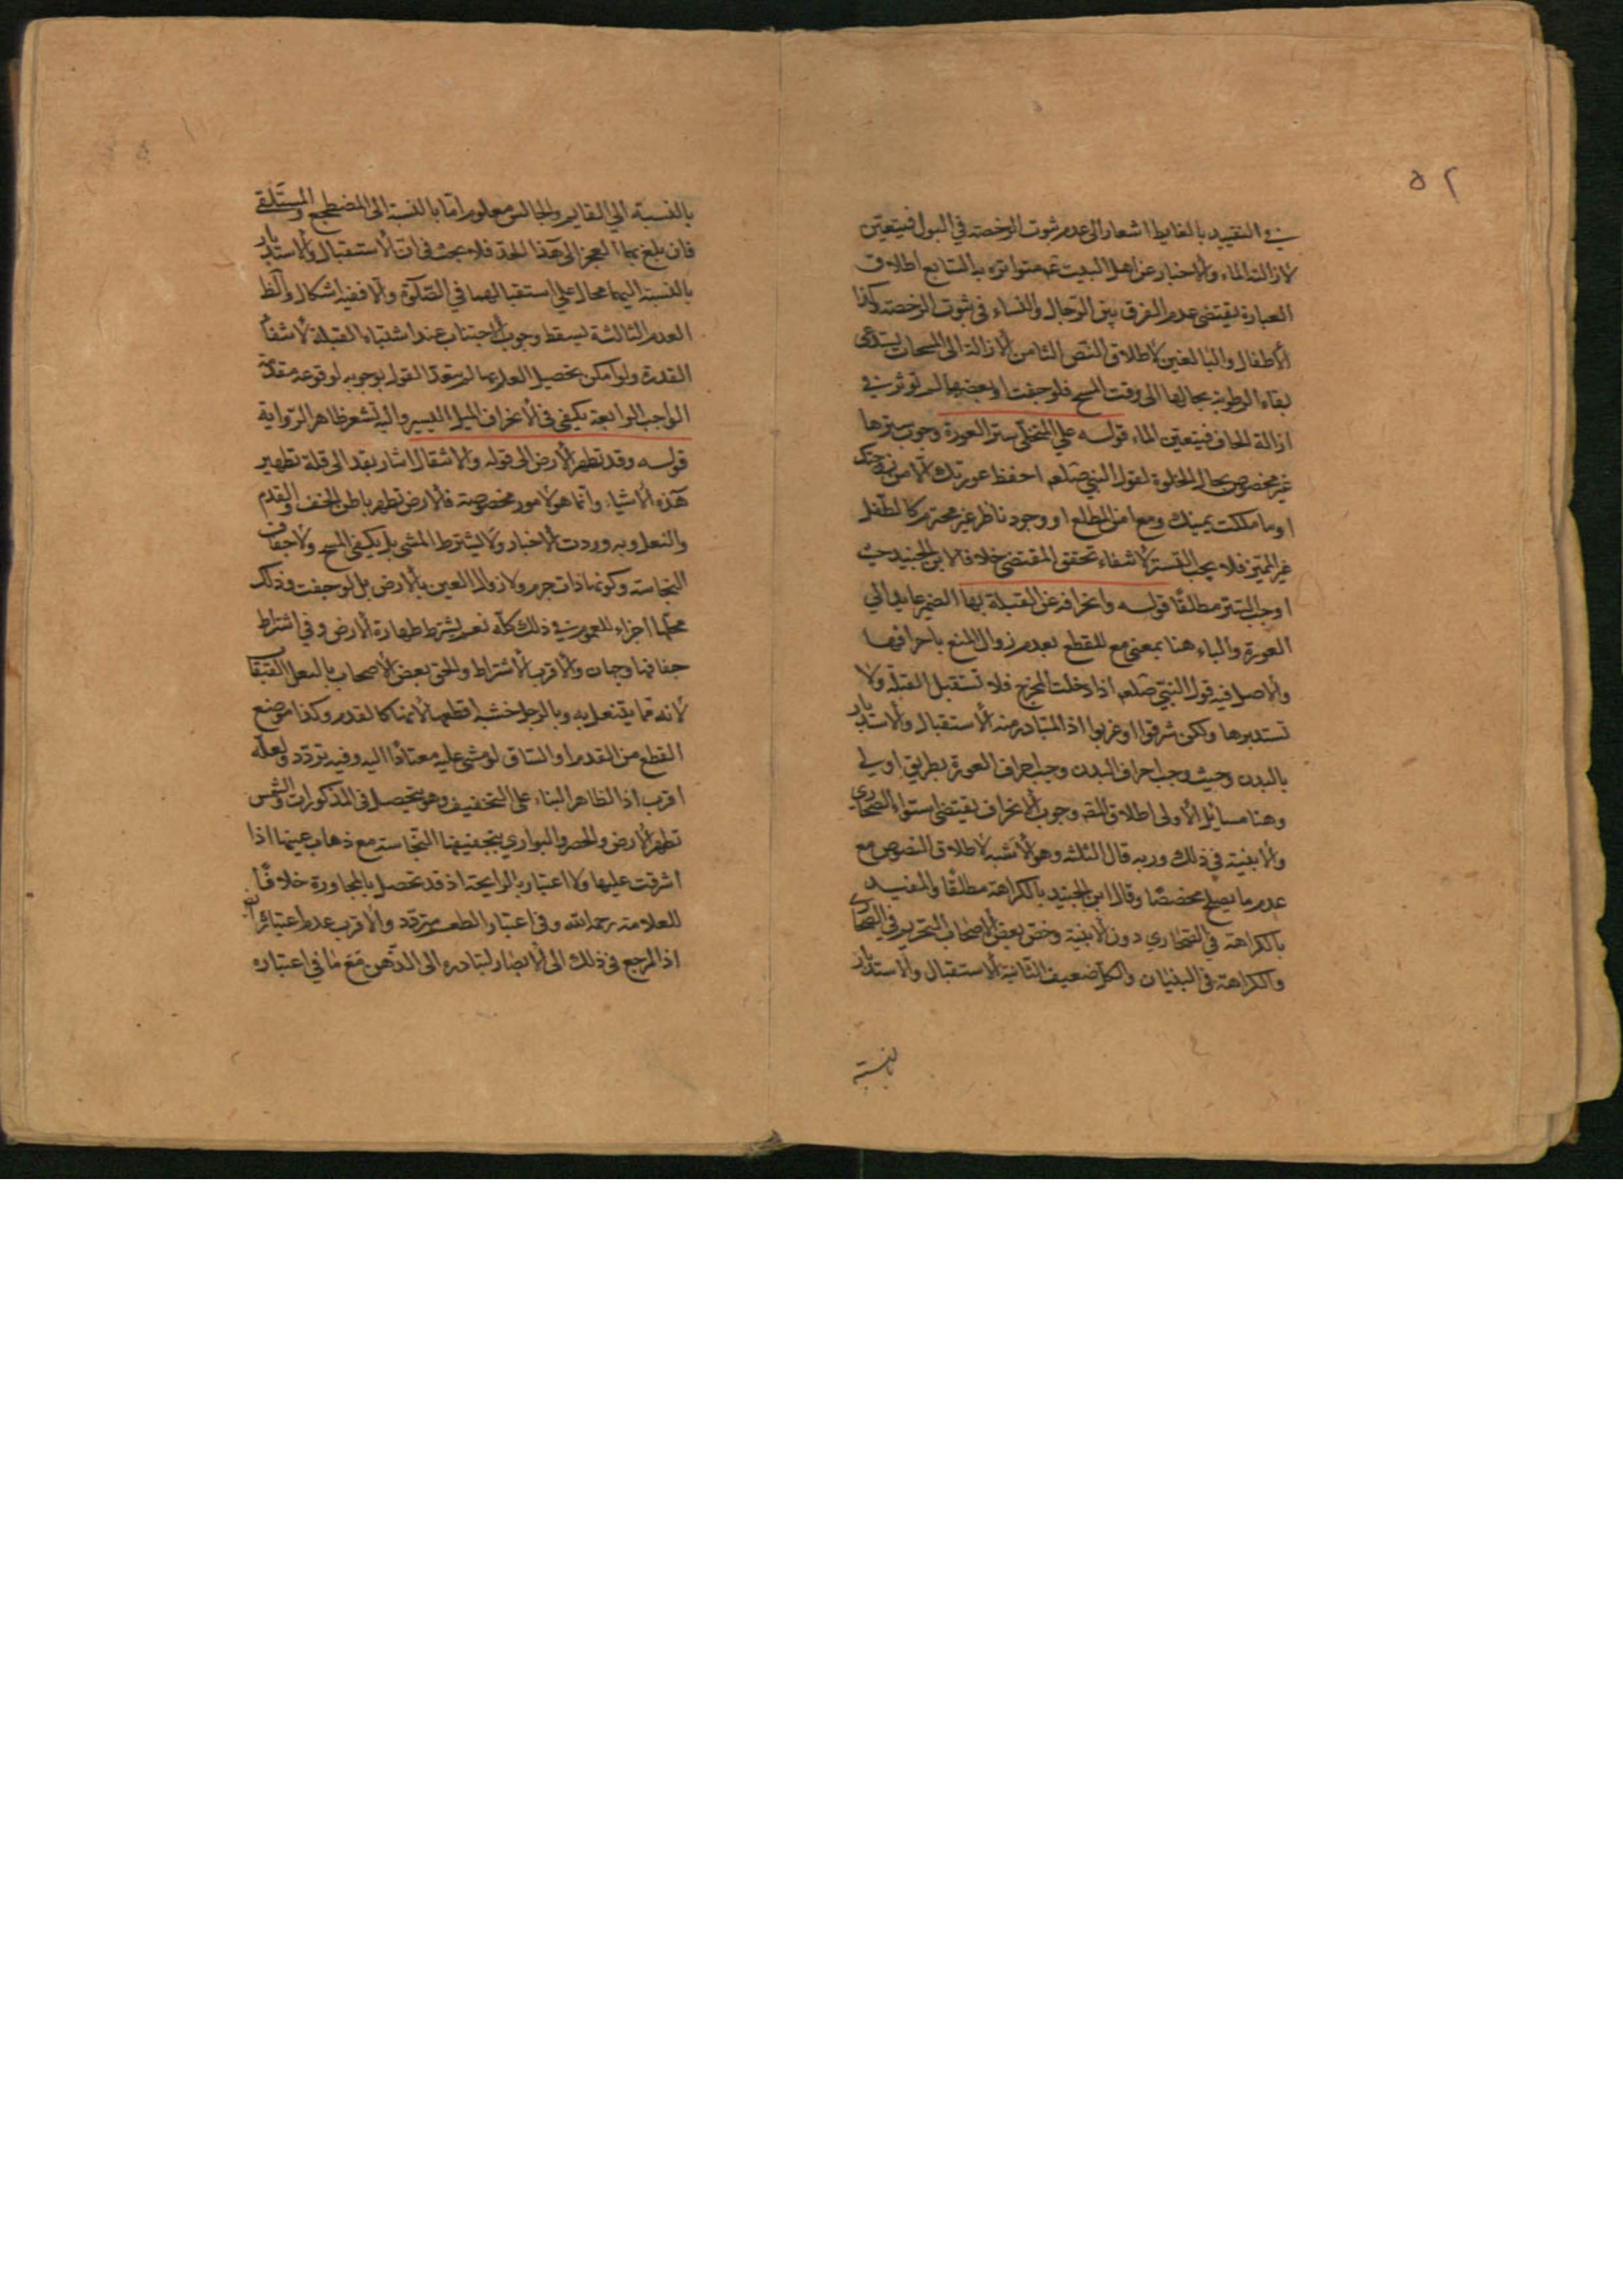 ٥٢
في التقييد بالغايط اشعار الى عدم ثبوت الرخصة في البول فيتعين
لازالته الماء والاخبار عن اهل البيت ع متواترة به السابع اطلاق
العبارة يقتضي عدم الفرق بين الرجال والنساء في ثبوت الرخصة وكذا
الأطفال والبالغين لاطلاق النص الثامن الازالة الى المسحات يستدعي
بقاء الرطوبة بحالها الى وقت المسح فلو جفت او بعضها لم توثر في
ازالة الجاف فيتعين الماء قوله على المتخلي ستر العورة وجوب سترها
غير مخصوص بحال الخلوة لقول النبي صلعم احفظ عورتك الا من زوجتك
او ما ملكت يمينك ومع امن المطلع او وجود ناظر غير محترم كالطفل
غير المميز فلا يجب التستر لانتفاء تحقق المقتضي خلافا لابن الجنيد حيث
اوجب التستر مطلقًا قوله وانحرافه عن القبلة بها الضمير عايد الي
العورة والباء هنا بمعنى مع للقطع بعدم زوال المنع بانحرافها
والاصل فيه قول النبي صلعم اذا دخلت المخرج فلا تستقبل القبلة ولا
تستدبرها ولكن شرقوا او غربوا اذ المتبادر منه الاستقبال والاستدبار
بالبدن وحيث وجب احراف البدن وجب احراف العورة بطريق اولى
وهنا مسايل الأولى اطلاق المص وجوب الانحراف يقتضي استواء الصحاري
والابنية في ذلك وربه قال الثلثة وهو الأشبه لاطلاق النصوص مع
عدم ما يصلح مخصصًا وقال ابن الجنيد بالكراهة مطلقًا والمفيد
بالكراهة في الصحاري دون الابنية وخص بعض الاصحاب التحريم في الصحاري
والكراهة في البنيان والكل ضعيف الثانية الاستقبال والاستدبار
بالنسبة
بالنسبة الي القايم والجالس معلوم امّا بالنسبة الى المضطجع والمستلقي
فان بلغ بهما العجز الى هذا الحدّ فلا بحث في ان الاستقبال والاستدبار
بالنسبة اليهما محال علي استقبالهما في الصلوة والا ففيه اشكال والظ
العدم الثالثة يسقط وجوب الاجتناب عند اشتباه القبلة لانتفاء
القدرة ولو امكن تحصيل العلم بها لم يبعد القول بوجوبه لوقوعه مقدمة
الواجب الرابعة يكفي في الانحراف الميل اليسير واليه تشعر ظاهر الرواية
قوله وقد تطهر الأرض الى قوله والانتقال اشار بقد الى قلة تطهير
هذه الاشياء وانما هو لامور مخصوصة فالارض تطهر باطن الخف والقدم
والنعل وبه وردت الأخبار ولا يشترط المشي بل يكفي المسح ولا جفاف
النجاسة وكونها ذات جرم ولا زوال العين بالارض بل لو جفت فدلك
محلها اجزاء للعموم في ذلك كله نعم يشترط طهارة الارض وفي اشتراط
جفافها وجهان والاقرب الاشتراط والحق بعض الاصحاب بالنعل القبقاب
لأنه مما يتنعل به وبالرجل خشبة اقطعها لانها كالقدم وكذا موضع
القطع من القدم او الساق لو مشى عليه معتادًا اليه وفيه تردد ولعله
اقرب اذ الظاهر البناء على التخفيف وهو يحصل في المذكورات والشمس
تطهر الارض والحصر والبواري بتجفيفها النجاسة مع ذهاب عينها اذا
اشرقت عليها ولا اعتبار بالرايحة اذ قد تحصل بالمجاورة خلافًا
للعلامة رحمه الله وفي اعتبار الطعم تردد والاقرب عدم اعتباره
اذ المرجع في ذلك الى الابصار لتبادره الى الذهن مع ما في اعتباره